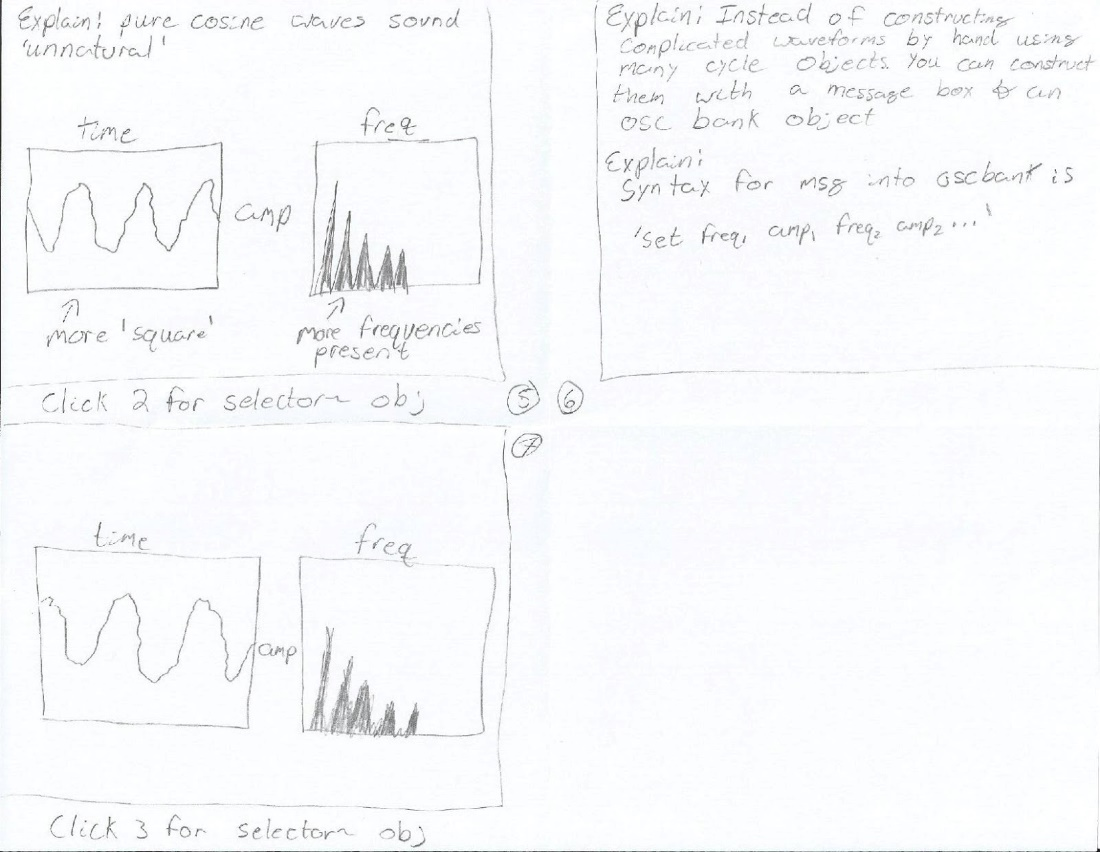 Explain: pure cosine waves sound
'unnatural'
time
freq
amp
more 'square'
more frequencies
present
Click 2 for selector~ obj
5
6
Explain: Instead of constructing
complicated waveforms by hand using
many cycle objects. You can construct
them with a message box & an
osc bank object
Explain:
Syntax for msg into oscbank is
'set freq1 amp1 freq2 amp2...'
7
time
freq
amp
Click 3 for selector~ obj